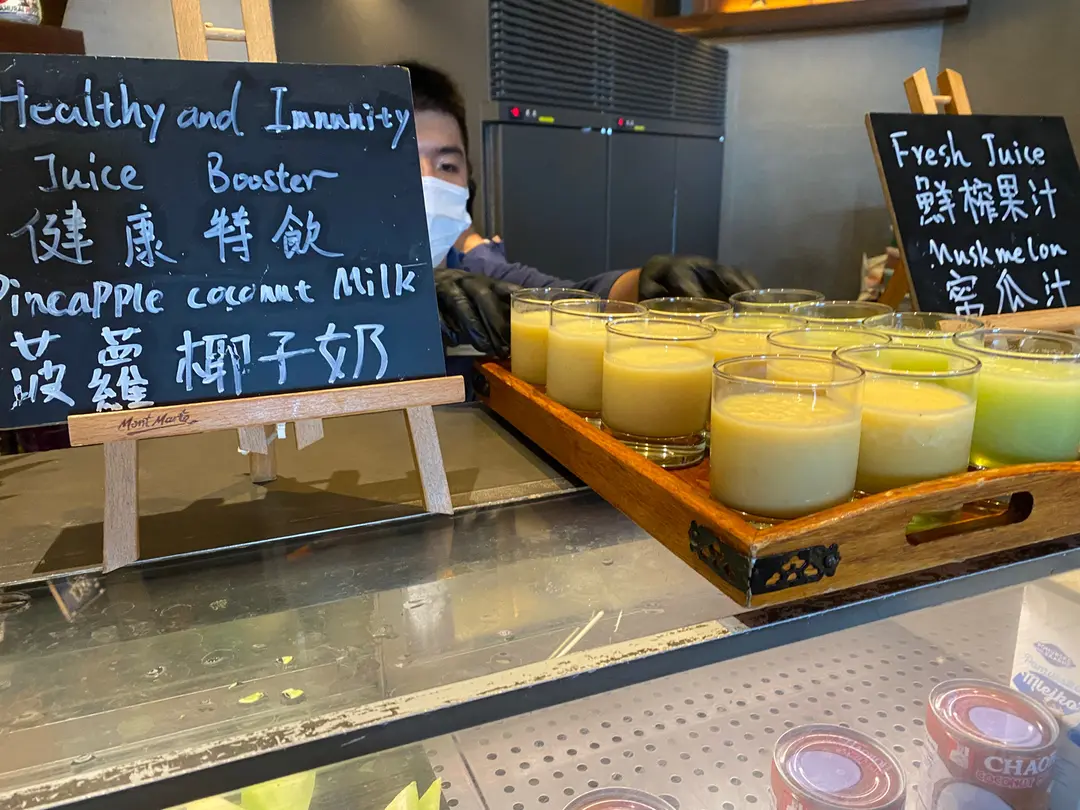 Healthy and Immunity
Juice Booster
健康特飲
Pineapple coconut Milk
菠蘿椰子奶
Mont Marte
Fresh Juice
鮮榨果汁
Muskmelon
蜜瓜汁
Mlejko
CHAO
COCONUT